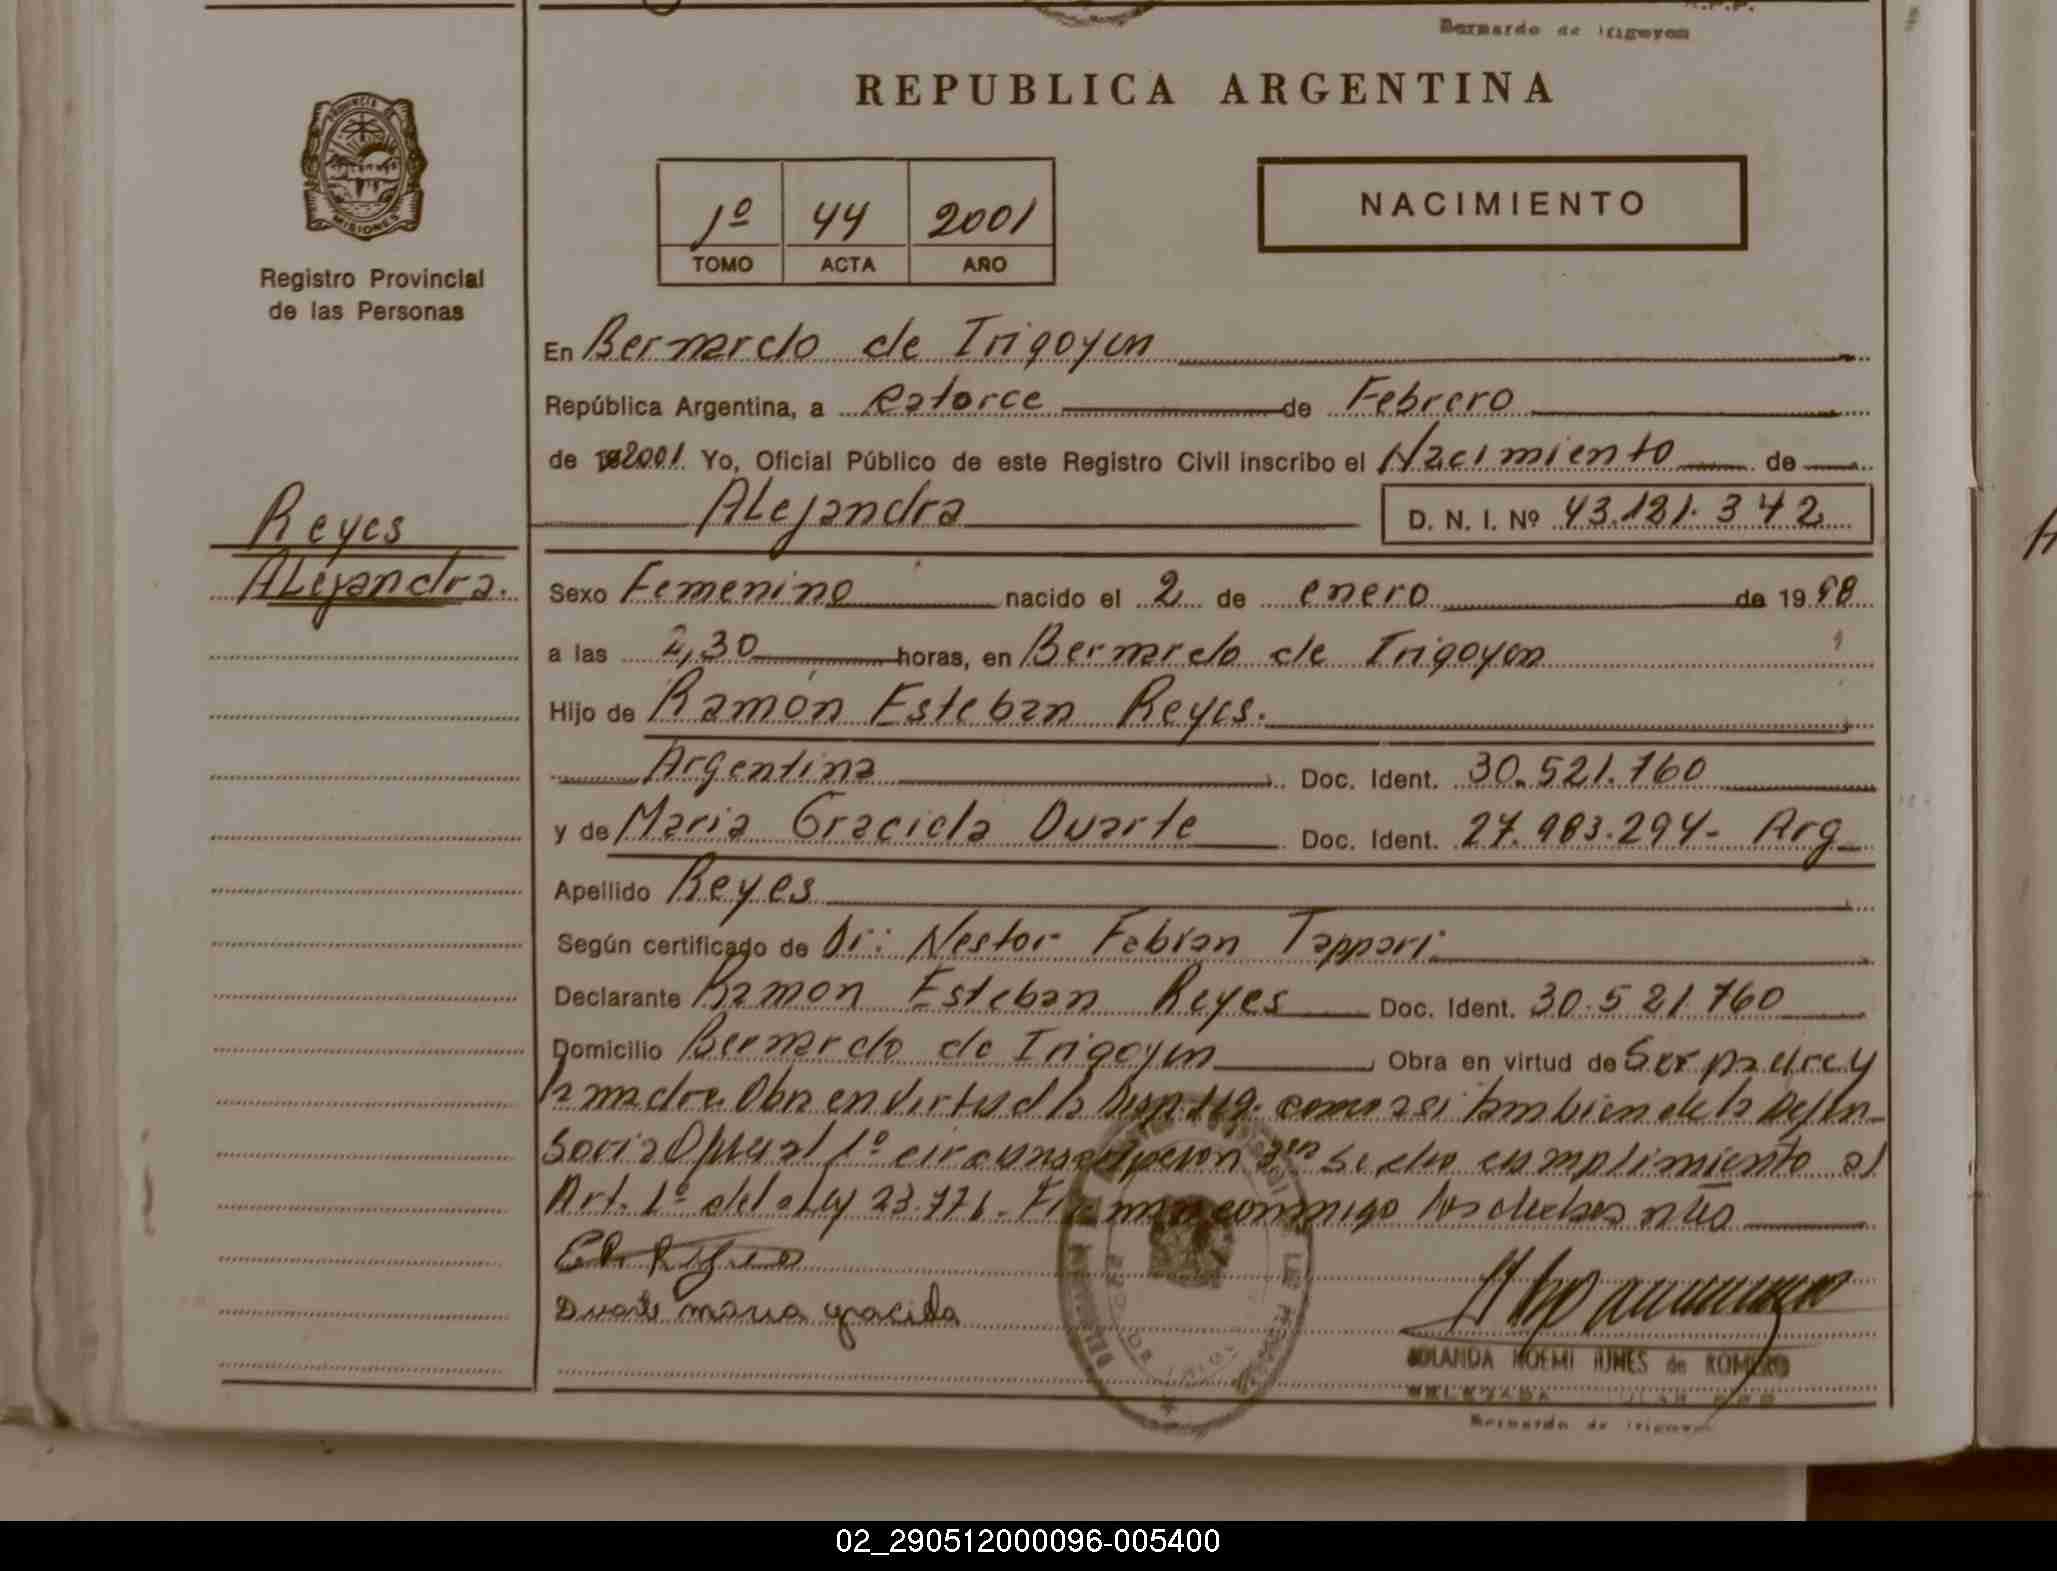 Bernardo de Irigoyen
REPUBLICA ARGENTINA
PROVINCIA DE
MISIONES
Registro Provincial
de las Personas
1º 44 2001
TOMO ACTA AÑO
NACIMIENTO
En Bernardo de Irigoyen
República Argentina, a catorce de Febrero
de 2001 Yo, Oficial Público de este Registro Civil inscribo el Nacimiento de
Alejandra D. N. I. Nº 43.121.342
Reyes
Alejandra.
Sexo Femenino nacido el 2 de enero de 1998
a las 2,30 horas, en Bernardo de Irigoyen
Hijo de Ramón Esteban Reyes.
Argentina Doc. Ident. 30.521.760
y de Maria Graciela Duarte Doc. Ident. 27.983.294- Arg
Apellido Reyes
Según certificado de Dr: Nestor Fabian Tappari
Declarante Ramon Esteban Reyes Doc. Ident. 30.521.760
Domicilio Bernardo de Irigoyen Obra en virtud de Ser padre y
la madre. Obra en virtud de la Disp. 119. como asi tambien de la Defen
Soria Oficial 1º circunscripcion se dio cumplimiento al
Art. 1º de la Ley 23.776. Firman conmigo los dichos
Duarte maria graciela
YOLANDA NOEMI de ROMERO
Bernardo de Irigoyen
02_290512000096-005400